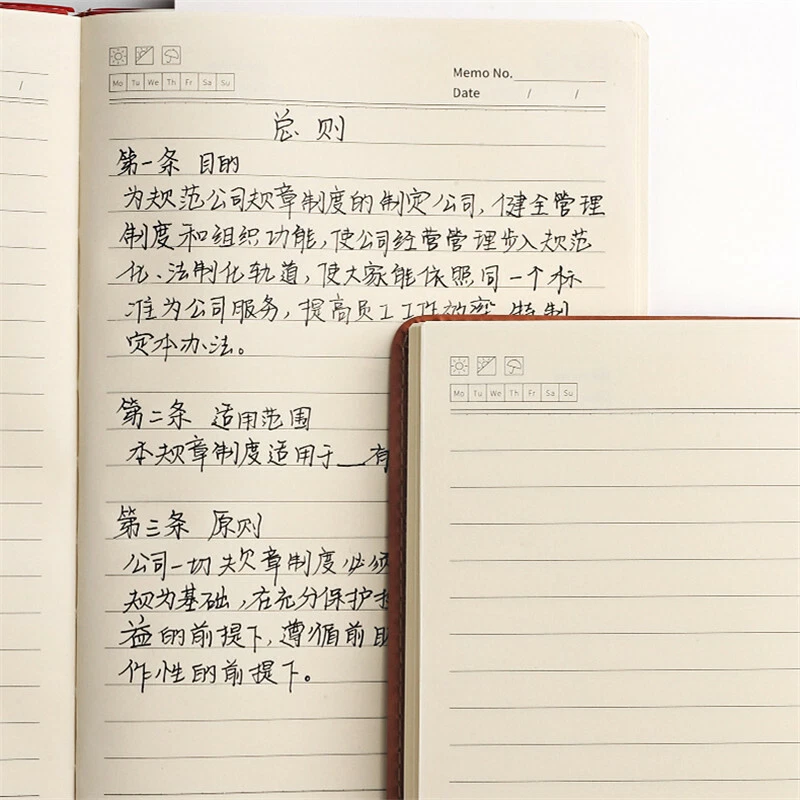 Mo Tu We Th Fr Sa Su
Memo No.
Date / /
总则
第一条 目的
为规范公司规章制度的制定公司，健全管理
制度和组织功能，使公司经营管理步入规范
化、法制化轨道，使大家能依照同一个标
准为公司服务，提高员工工作效率，特制
定本办法。
第二条 适用范围
本规章制度适用于__有
第三条 原则
公司一切规章制度必须
规为基础，在充分保护
益的前提下，遵循前
作性的前提下。
/
Mo Tu We Th Fr Sa Su